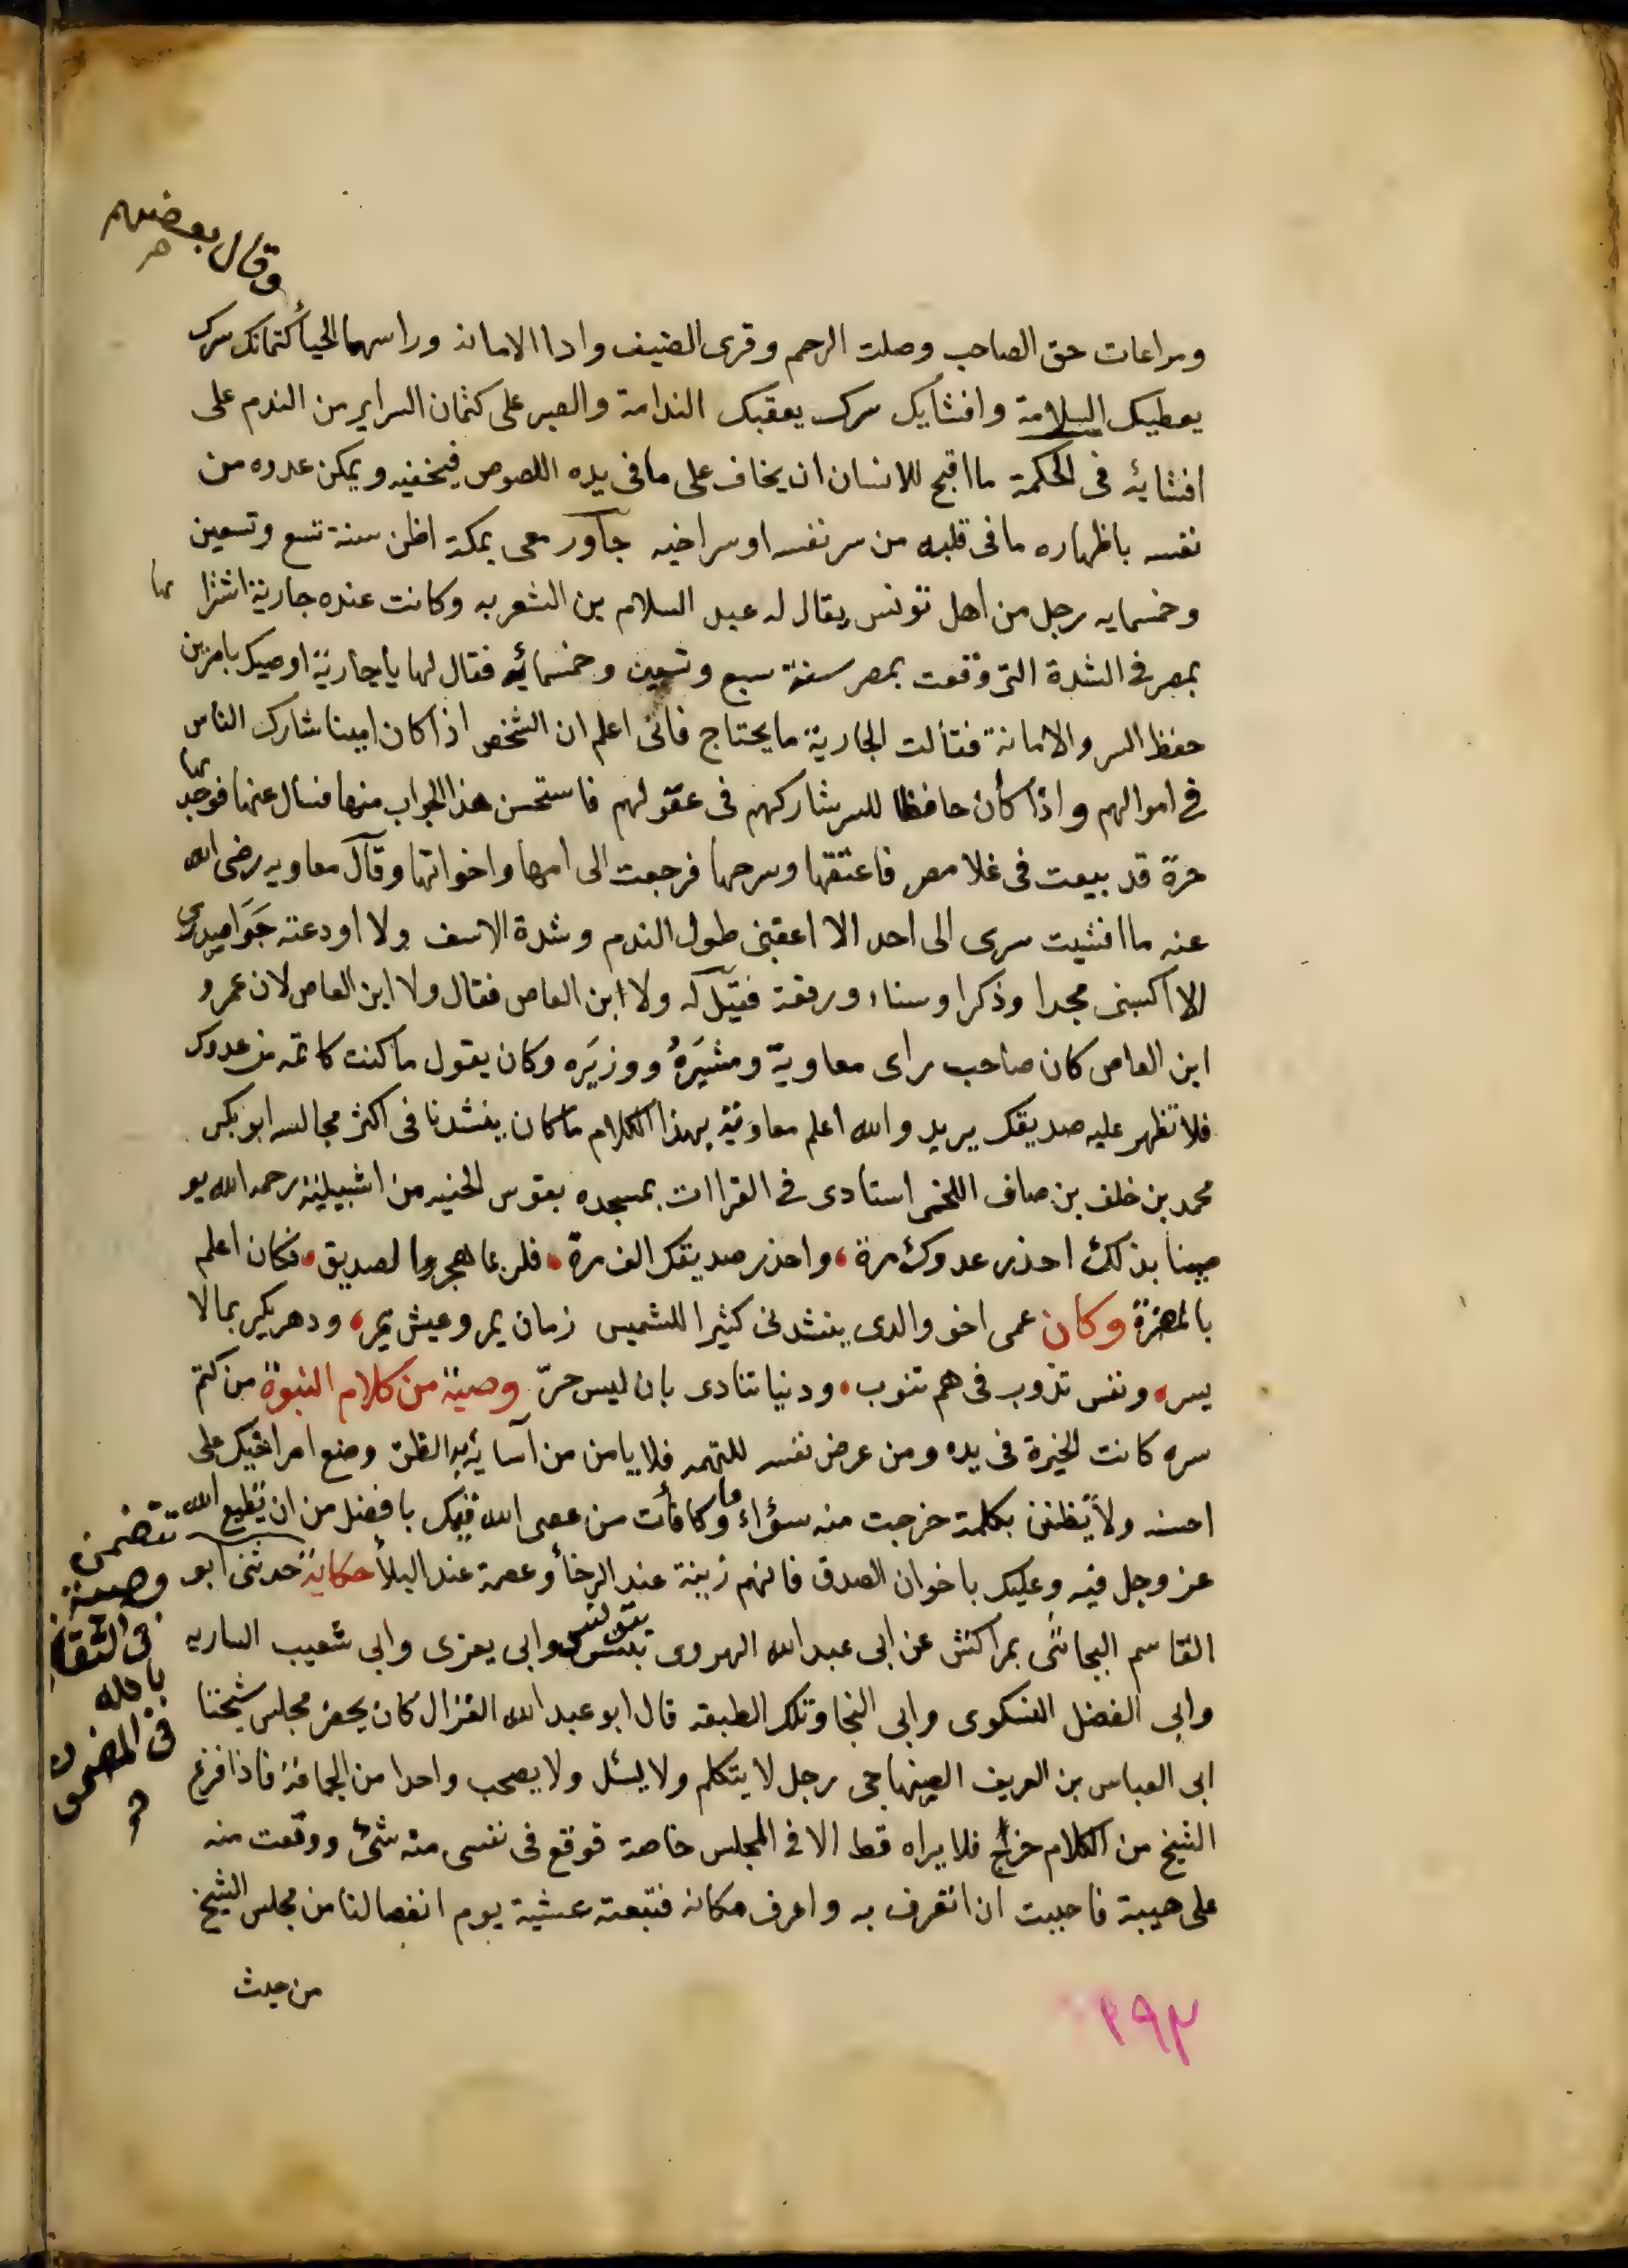 وقال بعضهم
ومراعات حق الصاحب وصلت الرحم وقرى الضيف وادا الامانه وراسهما الحيأ كتمانك سرك
يعطيك السلامة وافشأيك سرك يعقبك الندامة والصبر على كتمان السراير من الندم على
افشايه فى الحكمة ما اقبح للانسان ان يخاف على ما فى يده اللصوص فيخفيه ويمكن عدوه من
نفسه باظهاره ما فى قلبه من سر نفسه او سر اخيه جآور معى بمكة اظن سنة تسع وتسعين
وخمسمايه رجل من اهل تونس يقال له عبد السلام بن الشعريه وكانت عنده جارية اشترا ها
بمصر فى الشدة التى وقعت بمصر سنة سبع وتسعين وخمسمائه فقال لها يا جارية اوصيك بامرين
حفظ السر والامانة فقالت الجارية ما يحتاج فانى اعلم ان الشخص اذا كان امينا شارك الناس
فى اموالهم واذا كان حافظا للسر شاركهم فى عقولهم فاستحسن هذا الجواب منها فسال عنها فوجد ها
حرة قد بيعت فى غلا مصر فاعتقها وسرحها فرجعت الى امها واخواتها وقآل معاويه رضى الله
عنه ما افشيت سرى الى احد الا اعقبنى طول الندم وشدة الاسف ولا اودعته جَوَا صدرى
الا اكسبنى مجدا وذكرا وسناء ورفعة فقيل له ولا ابن العاص فقال ولا ابن العاص لان عمرو
ابن العاص كان صاحب راى معاوية ومشيَرهُ ووزيَره وكان يقول ما كنت كاتمه من عدوك
فلا تظهر عليه صديقك يريد والله اعلم معاوية بهذا الكلام ما كان ينشدنا فى اكثر مجالسه ابو بكر
محمد بن خلف بن صاف اللخمى استادى فى القراات بمسجده بقوس الحنيه من اشبيلية رحمه الله يو
صينا بذلك احذر عدوك مرة، واحذر صديقك الف مرة، فلربما هجر والصديق، فكان اعلم
بالمضرة وكان عمى اخو والدى ينشدنى كثيرا للشميس زمان يمر وعيش يمر، ودهر يكر بما لا
يسر، ونفس تذوب فى هم تنوب، ودنيا تنادى بان ليس حرّ وصية من كلام النبوة من كتم
سره كانت الخيرة فى يده ومن عرض نفسه للتهمه فلا يامن من آسا به الظن وضع امر اخيك على
احسنه ولا تظنن بكلمة خرجت منه سؤاء وما كافأت من عصى الله فيك بافضل من ان تطيع الله
عز وجل فيه وعليك باخوان الصدق فانهم زينة عند الرخأ وعصمة عند البلأ حكاية حدثنى ابو
القاسم البجائى بمراكش عن ابى عبد الله الهروى وابى يعزى وابى شعيب الساريه
وابى الفضل الفسكوى وابى النجا وتلك الطبقه قال ابو عبد الله الغزال كان يحضر مجلس شيخنا
ابى العباس بن العريف الصنهاجى رجل لا يتكلم ولا يسئل ولا يصحب واحدا من الجماعة فاذا فرغ
الشيخ من الكلام خرج فلا يراه قط الا فى المجلس خاصة فوقع فى نفسى منه شئ ووقعت منه
على هيبة فاحببت ان اتعرف به واعرف مكانه فتبعته عشية يوم انفصالنا من مجلس الشيخ
من حيث
تتضمن
وصية
فى الثقة
بالله
فى المضمون
٢٩٣